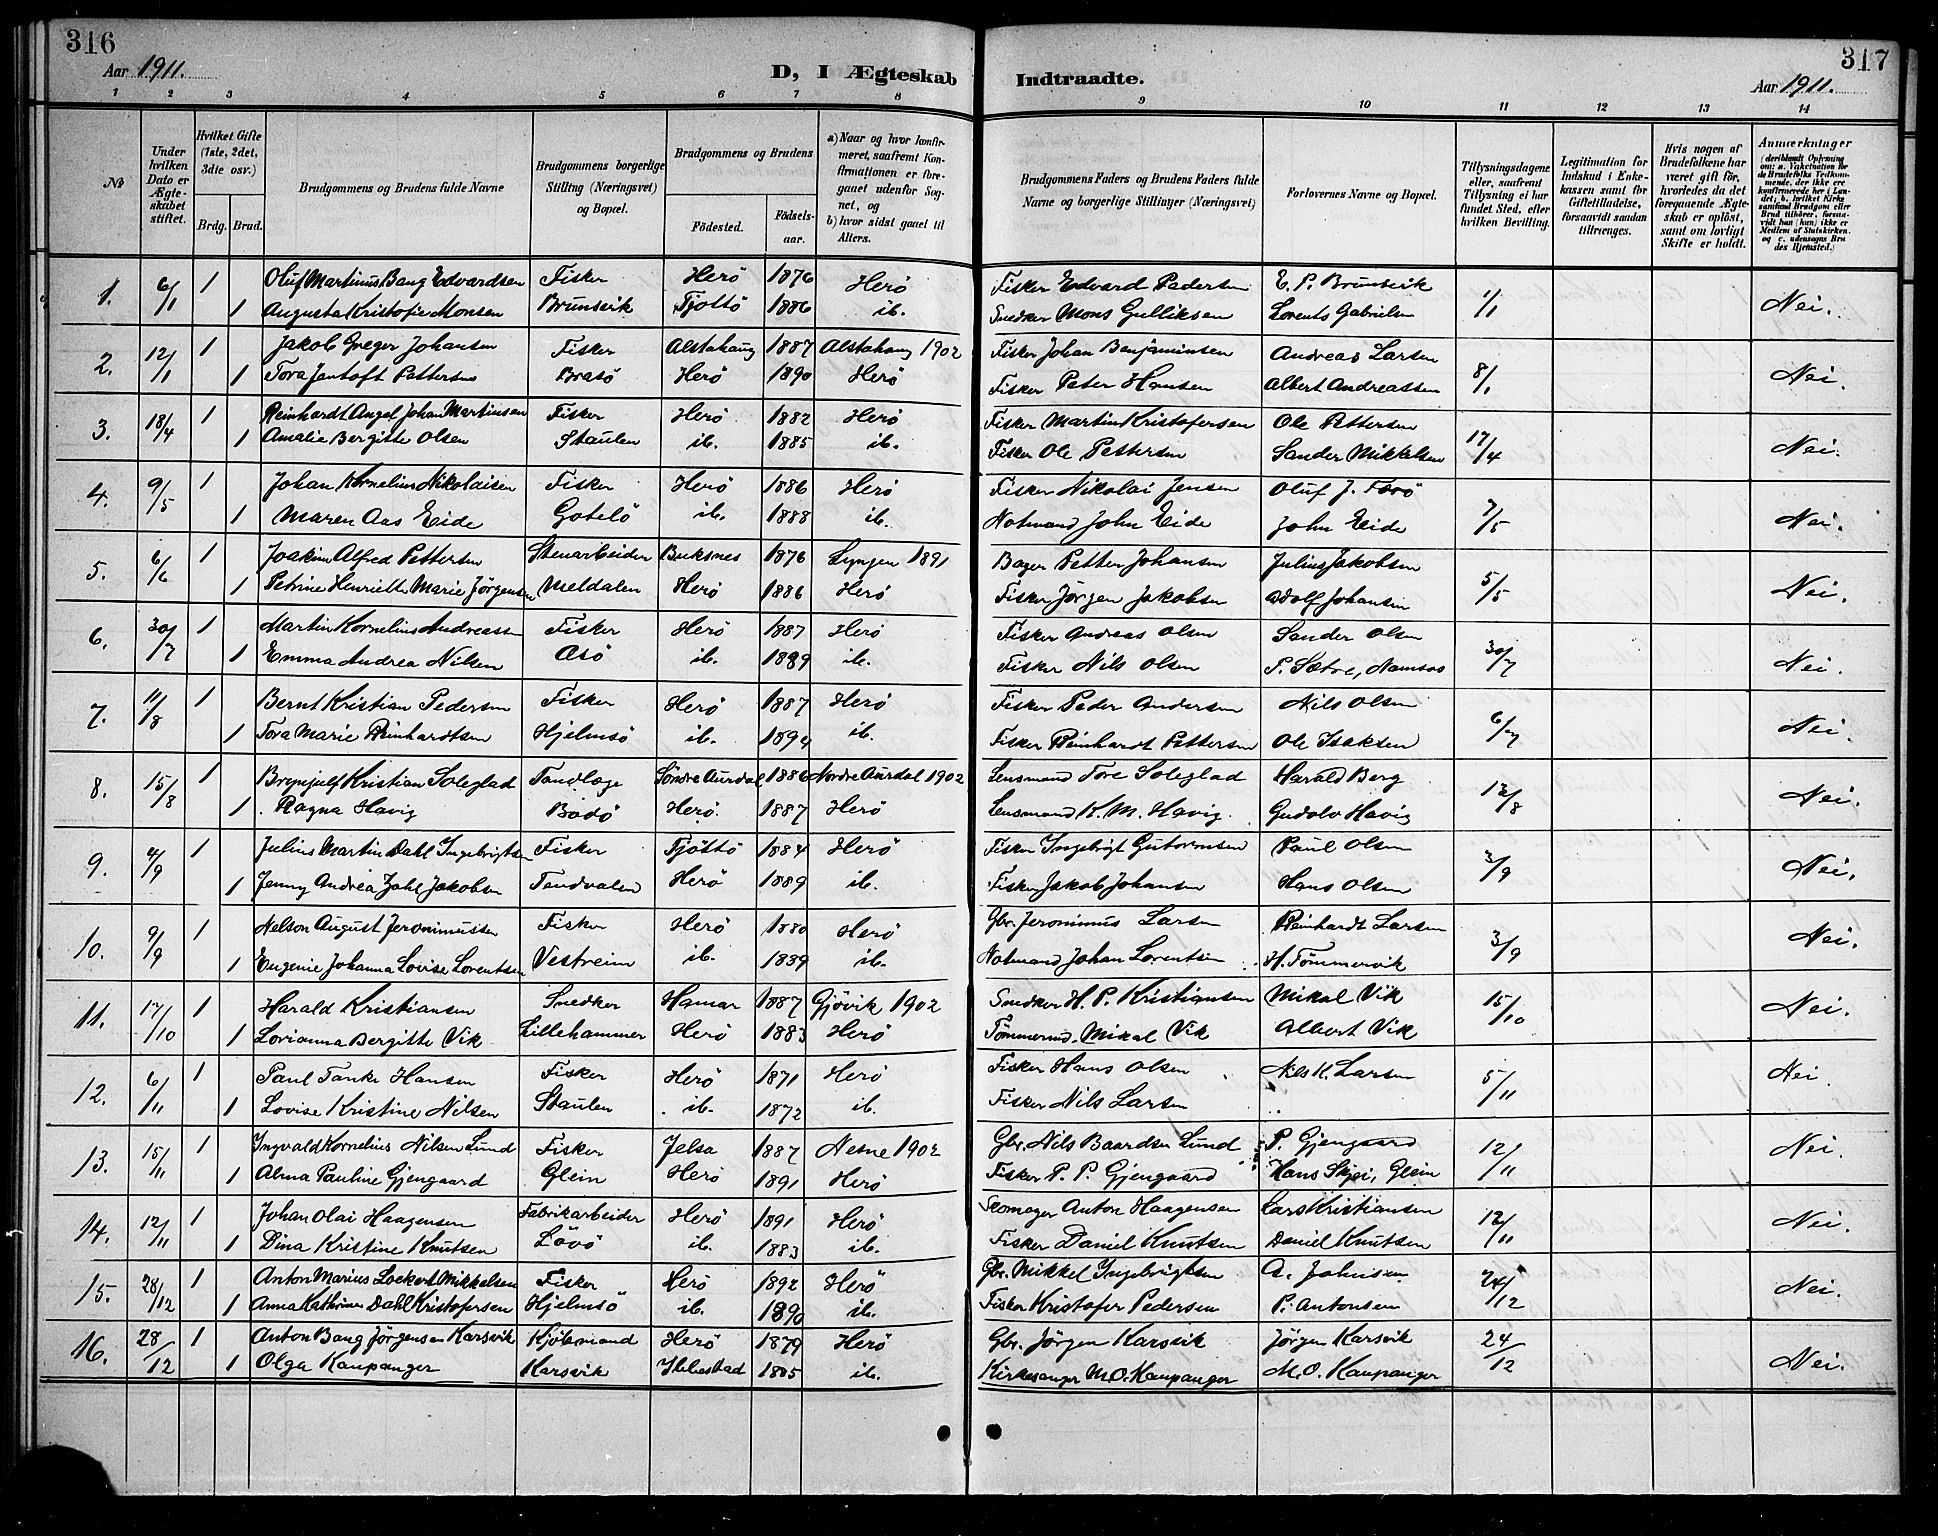 316
317
Aar 1911.
D, I Ægteskab Indtraadte.
Aar 1911.
1 2 3 4 5 6 7 8 9 10 11 12 13 14
No
Under hvilken Dato er Ægteskabet stiftet.
Hvilket Gifte (1ste, 2det, 3die osv.)
Brdg. Brud.
Brudgommens og Brudens fulde Navne
Brudgommens borgerlige Stilling (Næringsvei) og Bopæl.
Brudgommens og Brudens
Fødested.
Fødselsaar.
a) Naar og hvor konfirmeret, saafremt Konfirmationen er foregaaet udenfor Sognet, og
b) hvor sidst gaaet til Alters.
Brudgommens Faders og Brudens Faders fulde Navne og borgerlige Stillinger (Næringsvei)
Forlovernes Navne og Bopæl.
Tillysningsdagene eller, saafremt Tillysning ei har fundet Sted, efter hvilken Bevilling.
Legitimation for Indskud i Enkekassen samt for Giftetilladelse, forsaavidt saadan tiltrænges.
Hvis nogen af Brudefolkene har været gift før, hvorledes da det foregaaende Ægteskab er opløst, samt om lovligt Skifte er holdt.
Anmærkninger
(deriblandt Oplysning om: a. Vakcination for de Brudefolks Vedkommende, der ikke ere konfirmerede her i Landet; b. hvilket Kirkesamfund Brudgom eller Brud tilhører, forsaavidt han (hun) ikke er Medlem af Statskirken, og c. udensogns Brudes Hjemsted.
1. 6/1 1 Oluf Martinus Bang Edvardsen Fisker Herö 1876 Herö Fisker Edvard Pedersen E. P. Brunsvik 1/1 Nei.
1 Augusta Kristofie Monsen Brunsvik Tjöttö 1886 ib. Snedker Mons Gulliksen Lorents Gabrielsen
2. 12/1 1 Jakob Greger Johansen Fisker Alstahaug 1887 Alstahaug 1902 Fisker Johan Benjaminsen Andreas Larsen 8/1 Nei.
1 Tora Jentoft Pettersen Brasö Herö 1890 Herö Fisker Peter Hansen Albert Andreassen
3. 18/4 1 Reinhardt Angel Johan Martinsen Fisker Herö 1882 Herö Fisker Martin Kristofersen Ole Pettersen 17/4 Nei.
1 Amalie Bergitte Olsen Staulen ib. 1885 ib. Fisker Ole Pettersen Sander Mikkelsen
4. 9/5 1 Johan Kornelius Nikolaisen Fisker Herö 1886 Herö Fisker Nikolai Jensen Oluf J. Færö 7/5 Nei.
1 Maren Aas Eide Gotelö ib. 1888 ib. Notmand John Eide John Eide
5. 6/6 1 Joakim Alfred Pettersen Stenarbeider Buksnes 1876 Lyngen 1891 Bager Petter Johansen Julius Jakobsen 5/5 Nei.
1 Petrine Henriette Marie Jörgensen Meldalen Herö 1886 Herö Fisker Jörgen Jakobsen Adolf Johansen
6. 30/7 1 Martin Kornelius Andreassen Fisker Herö 1887 Herö Fisker Andreas Olsen Sander Olsen 30/7 Nei.
1 Emma Andrea Nilsen Asö ib. 1889 ib. Fisker Nils Olsen P. Sætre, Namsos
7. 11/8 1 Bernt Kristian Pedersen Fisker Herö 1887 Herö Fisker Peder Andersen Nils Olsen 6/7 Nei.
1 Tora Marie Reinhardtsen Hjelmsö ib. 1894 ib. Fisker Reinhardt Pettersen Ole Isaksen
8. 15/8 1 Brynjulf Kristian Soleglad Tandlæge Söndre Aurdal 1886 Nordre Aurdal 1902 Lensmand Tore Soleglad Harald Berg 13/8 Nei.
1 Ragna Havig Bodö Herö 1887 Herö Lensmand K. M. Havig Gudolv Havig
9. 4/9 1 Julius Martin Dahl Ingebrigtsen Fisker Tjöttö 1884 Herö Fisker Ingebrigt Gutormsen Paul Olsen 3/9 Nei.
1 Jenny Andrea Zahl Jakobsen Tendvalen Herö 1889 ib. Fisker Jakob Johansen Hans Olsen
10. 9/9 1 Nelson August Jeronimussen Fisker Herö 1880 Herö Gbr. Jeronimus Larsen Reinhardt Larsen 3/9 Nei.
1 Eugenie Johanna Lovise Lorentsen Vestreim ib. 1889 ib. Notmand Johan Lorentsen H. Tömmervik
11. 17/10 1 Harald Kristiansen Snedker Hamar 1887 Gjövik 1902 Snedker H. P. Kristiansen Mikal Vik 15/10 Nei.
1 Lorianna Bergitte Vik Lillehammer Herö 1883 Herö Tömmermd. Mikal Vik Albert Vik
12. 6/11 1 Paul Tanke Hansen Fisker Herö 1871 Herö Fisker Hans Olsen Nils K. Larsen 5/11 Nei.
1 Lovise Kristine Nilsen Staulen ib. 1872 ib. Fisker Nils Larsen
13. 15/11 1 Ingvald Kornelius Nilsen Lund Fisker Jelsa 1887 Nesne 1902 Gbr. Nils Baardsen Lund P. Gjengaard 12/11 Nei.
1 Alma Pauline Gjengaard Glein Herö 1891 Herö Fisker P. P. Gjengaard Hans Skjei, Glein
14. 12/11 1 Johan Olai Haagensen Fabrikarbeider Herö 1891 Herö Skomager Anton Haagensen Lars Kristiansen 12/11 Nei.
1 Dina Kristine Knutsen Lövö ib. 1883 ib. Fisker Daniel Knutsen Daniel Knutsen
15. 28/12 1 Anton Marius Lockert Mikkelsen Fisker Herö 1892 Herö Gbr. Mikkel Ingebrigtsen A. Johnsen 24/12 Nei.
1 Anna Kathrine Dahl Kristofersen Hjelmsö ib. 1890 ib. Fisker Kristofer Pedersen P. Antonsen
16. 28/12 1 Anton Bang Jörgensen Karsvik Kjöbmand Herö 1879 Herö Gbr. Jörgen Karsvik Jörgen Karsvik 24/12 Nei.
1 Olga Kaupanger Karsvik Ibbestad 1885 ib. Kirkesanger M. O. Kaupanger M. O. Kaupanger